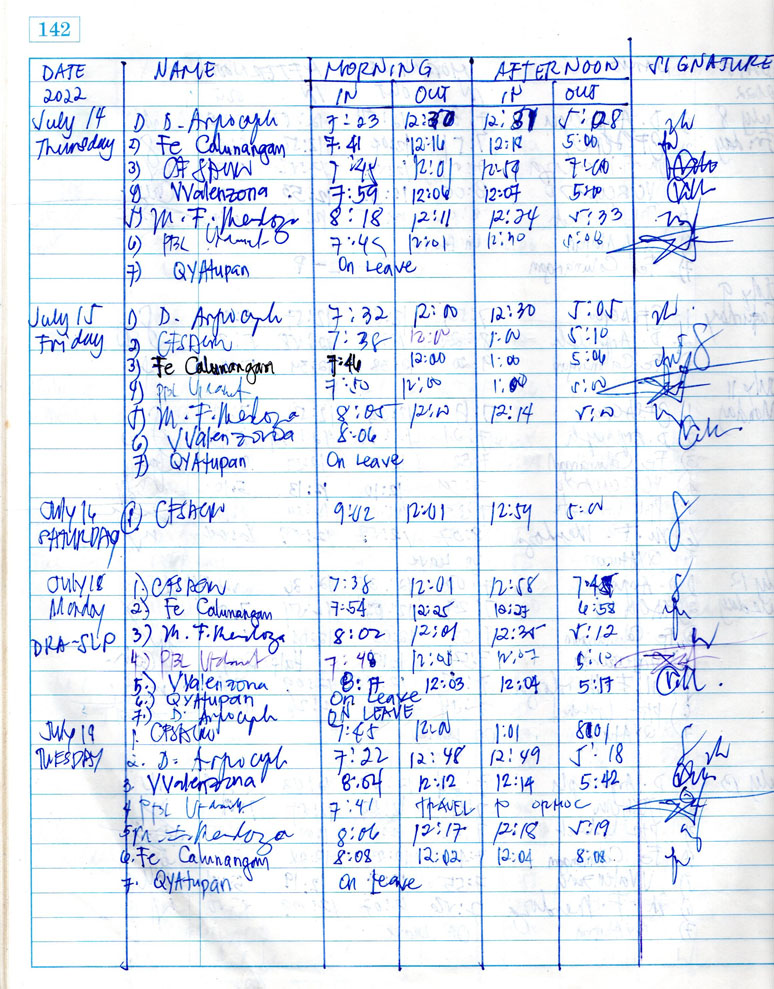 142
DATE NAME MORNING AFTERNOON SIGNATURE
2022 IN OUT IN OUT
July 14 1) D. Arpocaph 7:23 5:08
Thursday 2) Fe Calunangan 7:41 12:16 12:18 5:00
3) 7:45 12:01 12:59 7:00
4) VValenzona 7:59 12:06 12:07 5:00
5) M. F. Mendoza 8:18 12:11 12:24 5:33
6) PBL 7:45 12:01 12:30 5:08
7) QYAtupan On Leave
July 15 1) D. Arpocaph 7:32 12:00 12:30 5:05
Friday 2) 7:38 12:00 1:00 5:10
3) Fe Calunangan 7:46 12:00 1:00 5:06
4) PBL 7:50 12:00 1:00 5:00
5) M. F. Mendoza 8:05 12:10 12:14 5:00
6) VValenzona 8:06
7) QYAtupan On Leave
July 16 1 9:02 12:01 12:59 5:00
SATURDAY
July 18 1.) 7:38 12:01 12:58
Monday 2) Fe Calunangan 7:54 12:25 12:27 6:58
DRA-SLP 3) M. F. Mendoza 8:02 12:01 12:35 5:12
4.) PBL 7:48 12:01 12:07 5:10
5.) VValenzona 8:17 12:03 12:04 5:17
6.) QYAtupan On Leave
7.) D. Arpocaph ON LEAVE
July 19 1. 7:45 12:00 1:01 8:01
TUESDAY 2. D. Arpocaph 7:22 12:48 12:49 5:18
3. VValenzona 8:04 12:12 12:14 5:42
4 PBL 7:41 TRAVEL ORMOC
5 M. F. Mendoza 8:06 12:17 12:18 5:19
6. Fe Calunangan 8:08 12:02 12:04 8:08
7. QYAtupan On Leave